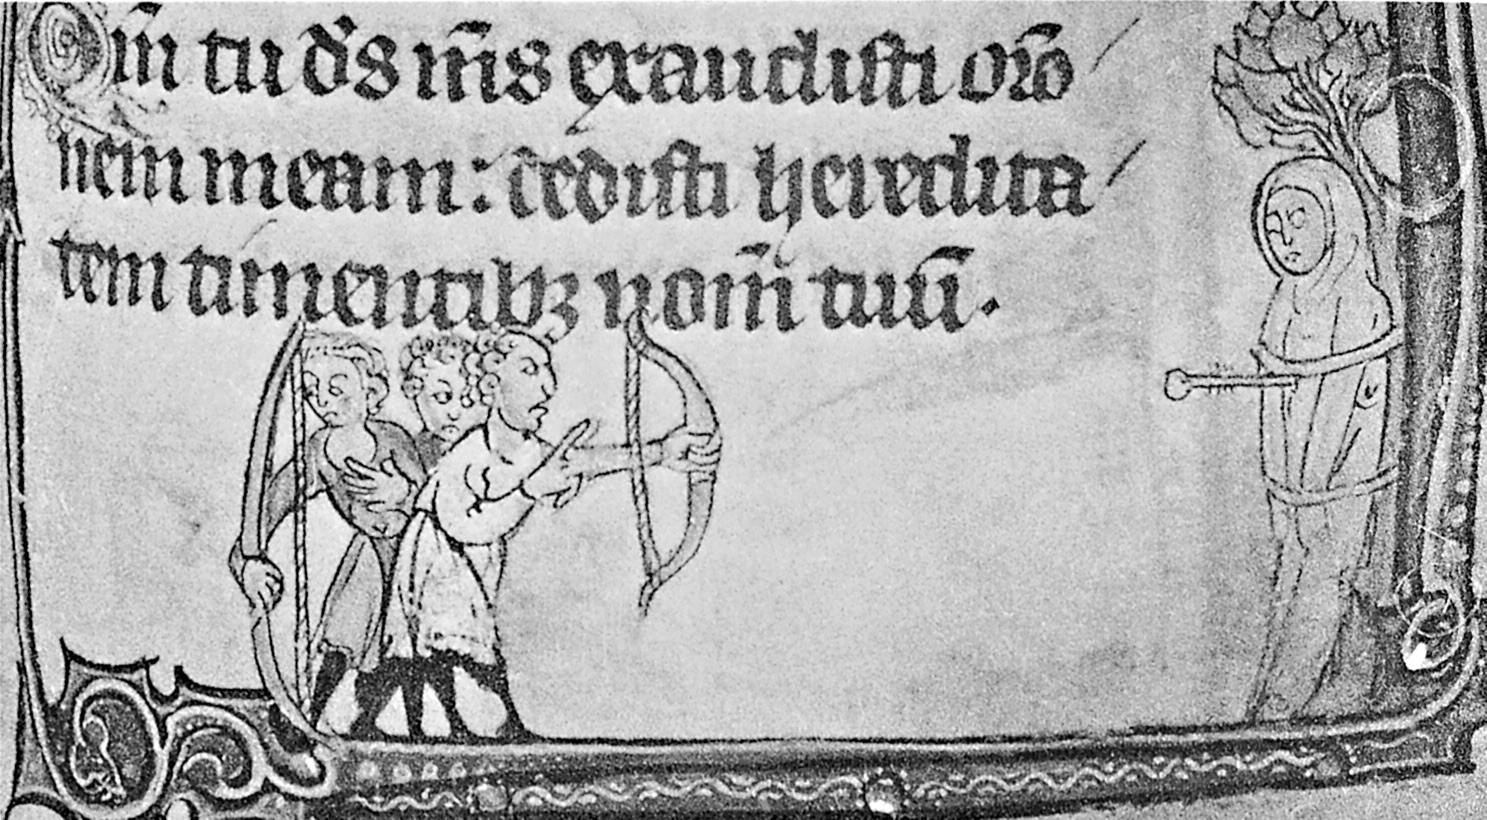 Qm̄ tu ds̄ m̄s exaudisti orō/
nem meam: dedisti heredita/
tem timentibꝫ nom̄ tuū.